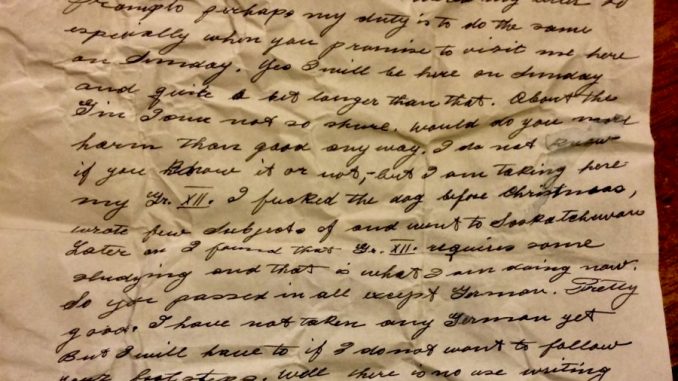 prompto perhaps my duty is to do the same
espicially when you promise to visit me here
on Sunday. Yes I will be here on Sunday
and quite a bet longer than that. About the
I'm not so shure. would do you more
harm than good any way. I do not know
if you know it or not,- but I am taking here
my Gr. XII. I fucked the dog before Christmas,
wrote few subjects of and went to Saskatchewan
Later on I found that Gr. XII. requires some
studying and that is what I am doing now.
So you passed in all except German. Pretty
good. I have not taken any German yet
But I will have to if I do not want to follow
your foot steps. Well there is no use writing